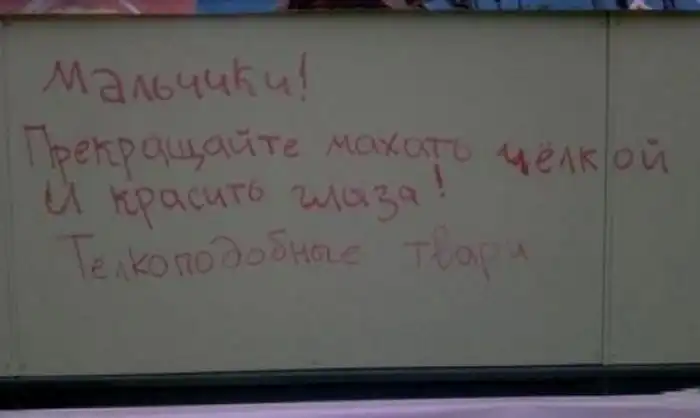 Мальчики!
Прекращайте махать чёлкой
и красить глаза!
Телкоподобные твари